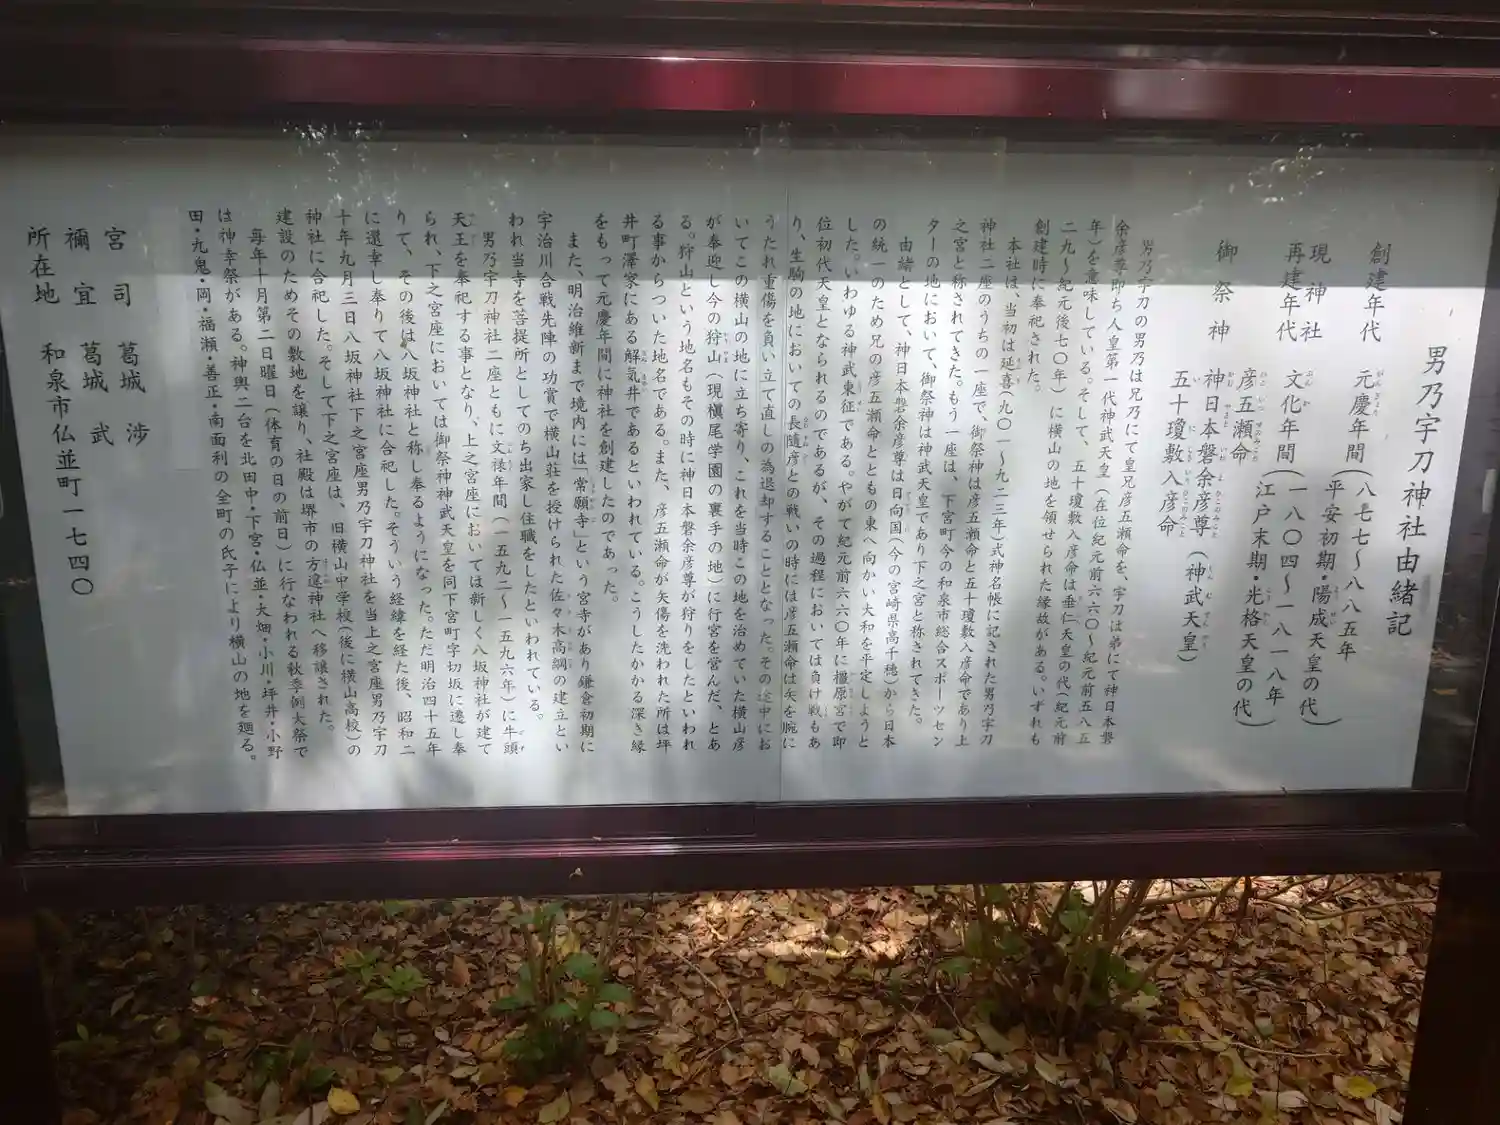 男乃宇刀神社由緒記
創建年代　元慶年間(八七七〜八八五年
平安初期・陽成天皇の代)
現神社
再建年代　文化年間(一八〇四〜一八一八年
江戸末期・光格天皇の代)
御祭神　彦五瀬命
神日本磐余彦尊(神武天皇)
五十瓊敷入彦命
男乃宇刀の男乃は兄乃にて皇兄彦五瀬命を、宇刀は弟にて神日本磐
余彦尊即ち人皇第一代神武天皇(在位紀元前六六〇〜紀元前五八五
年)を意味している。そして、五十瓊敷入彦命は垂仁天皇の代(紀元前
二九〜紀元後七〇年)に横山の地を領せられた縁故がある。いずれも
創建時に奉祀された。
本社は、当初は延喜(九〇一〜九二三年)式神名帳に記された男乃宇刀
神社二座のうちの一座で、御祭神は彦五瀬命と五十瓊敷入彦命であり上
之宮と称されてきた。もう一座は、下宮町今の和泉市総合スポーツセン
ターの地において、御祭神は神武天皇であり下之宮と称されてきた。
由緒として、神日本磐余彦尊は日向国(今の宮崎県高千穂)から日本
の統一のため兄の彦五瀬命とともの東へ向かい大和を平定しようと
した。いわゆる神武東征である。やがて紀元前六六〇年に橿原宮で即
位初代天皇となられるのであるが、その過程においては負け戦もあ
り、生駒の地においての長随彦との戦いの時には彦五瀬命は矢を腕に
うたれ重傷を負い立て直しの為退却することとなった。その途中にお
いてこの横山の地に立ち寄り、これを当時この地を治めていた横山彦
が奉迎し今の狩山(現槇尾学園の裏手の地)に行宮を営んだ、とあ
る。狩山という地名もその時に神日本磐余彦尊が狩りをしたといわれ
る事からついた地名である。また、彦五瀬命が矢傷を洗われた所は坪
井町澤家にある解気井であるといわれている。こうしたかかる深き縁
をもって元慶年間に神社を創建したのであった。
また、明治維新まで境内には「常願寺」という宮寺があり鎌倉初期に
宇治川合戦先陣の功賞で横山荘を授けられた佐々木高綱の建立とい
われ当寺を菩提所としてのち出家し住職をしたといわれている。
男乃宇刀神社二座ともに文禄年間(一五九二〜一五九六年)に牛頭
天王を奉祀する事となり、上之宮座においては新しく八坂神社が建て
られ、下之宮座においては御祭神神武天皇を同下宮町字切坂に遷し奉
りて、その後は八坂神社と称し奉るようになった。ただ明治四十五年
に還幸し奉りて八坂神社に合祀した。そういう経緯を経た後、昭和二
十年九月三日八坂神社下之宮座男乃宇刀神社を当上之宮座男乃宇刀
神社に合祀した。そして下之宮座は、旧横山中学校(後に横山高校)の
建設のためその敷地を譲り、社殿は堺市の方違神社へ移譲された。
毎年十月第二日曜日(体育の日の前日)に行なわれる秋季例大祭で
は神幸祭がある。神輿二台を北田中・下宮・仏並・大畑・小川・坪井・小野
田・九鬼・岡・福瀬・善正・南面利の全町の氏子により横山の地を廻る。
宮司　葛城　渉
禰宜　葛城　武
所在地　和泉市仏並町一七四〇